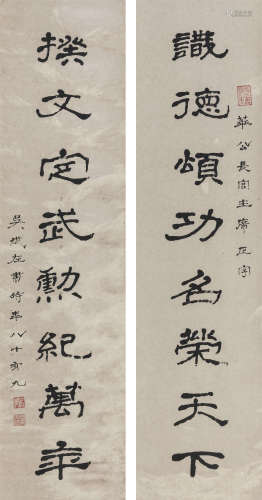 識德頌功名榮天下
華公長官主席正字
撰文定武勳紀萬年
時年八十有九